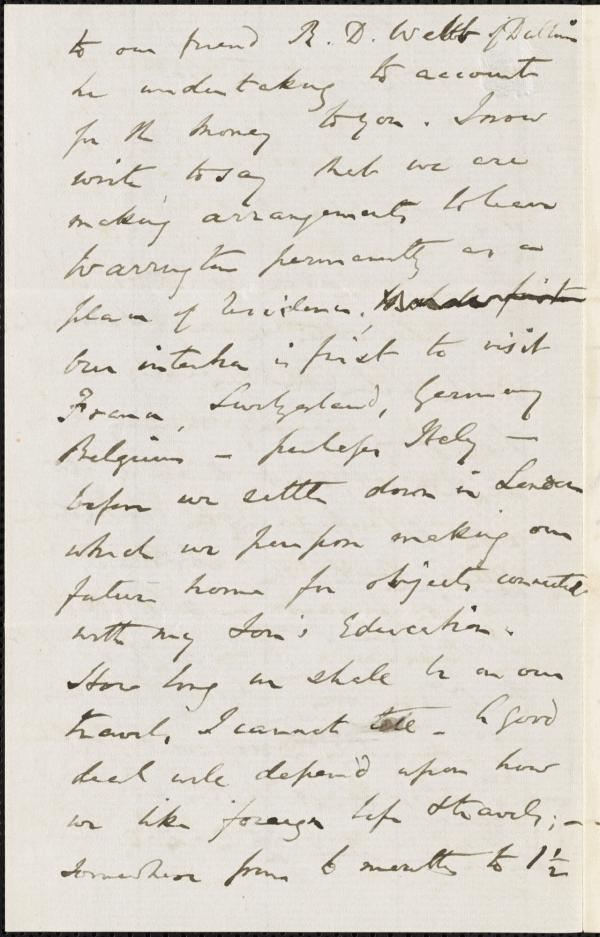 to our friend R. D. Webb of Dublin
he undertaking to account
for the money to you. I now
write to say that we are
making arrangements to leave
Warrington permanently as a
place of residence,
Our intention is first to visit
France, Switzerland, Germany
Belgium – perhaps Italy –
before we settle down in London
which we purpose making our
future home for objects connected
with my Son's Education.
How long we shall be on our
travels, I cannot tell – A good
deal will depend upon how
we like foreign life & travels; –
somewhere from 6 months to 1½